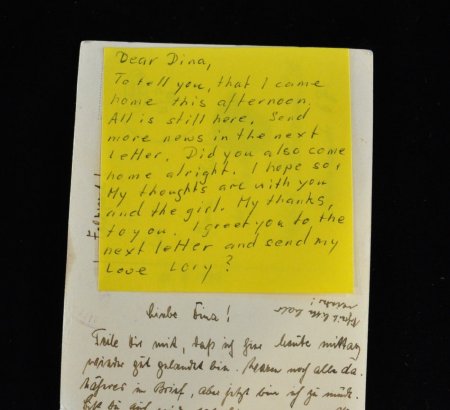 Dear Dina,
To tell you, that I came
home this afternoon.
All is still here. Send
more news in the next
letter. Did you also come
home alright. I hope so!
My thoughts are with you
and the girl. My thanks,
to you. I greet you to the
next letter and send my
Love Lory?
Liebe Dina!
Teile dir mit, daß ich heute mittag
gut gelandet bin. noch alles da.
Näheres im Brief, aber jetzt bin ich zu müde.